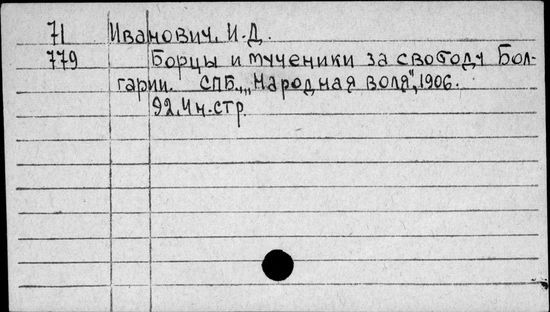 71 Иванович, И.Д.
779 Борцы и мученики за свободу Бол-
гарии. СПБ., „Народная воля", 1906.
92,4н.стр.